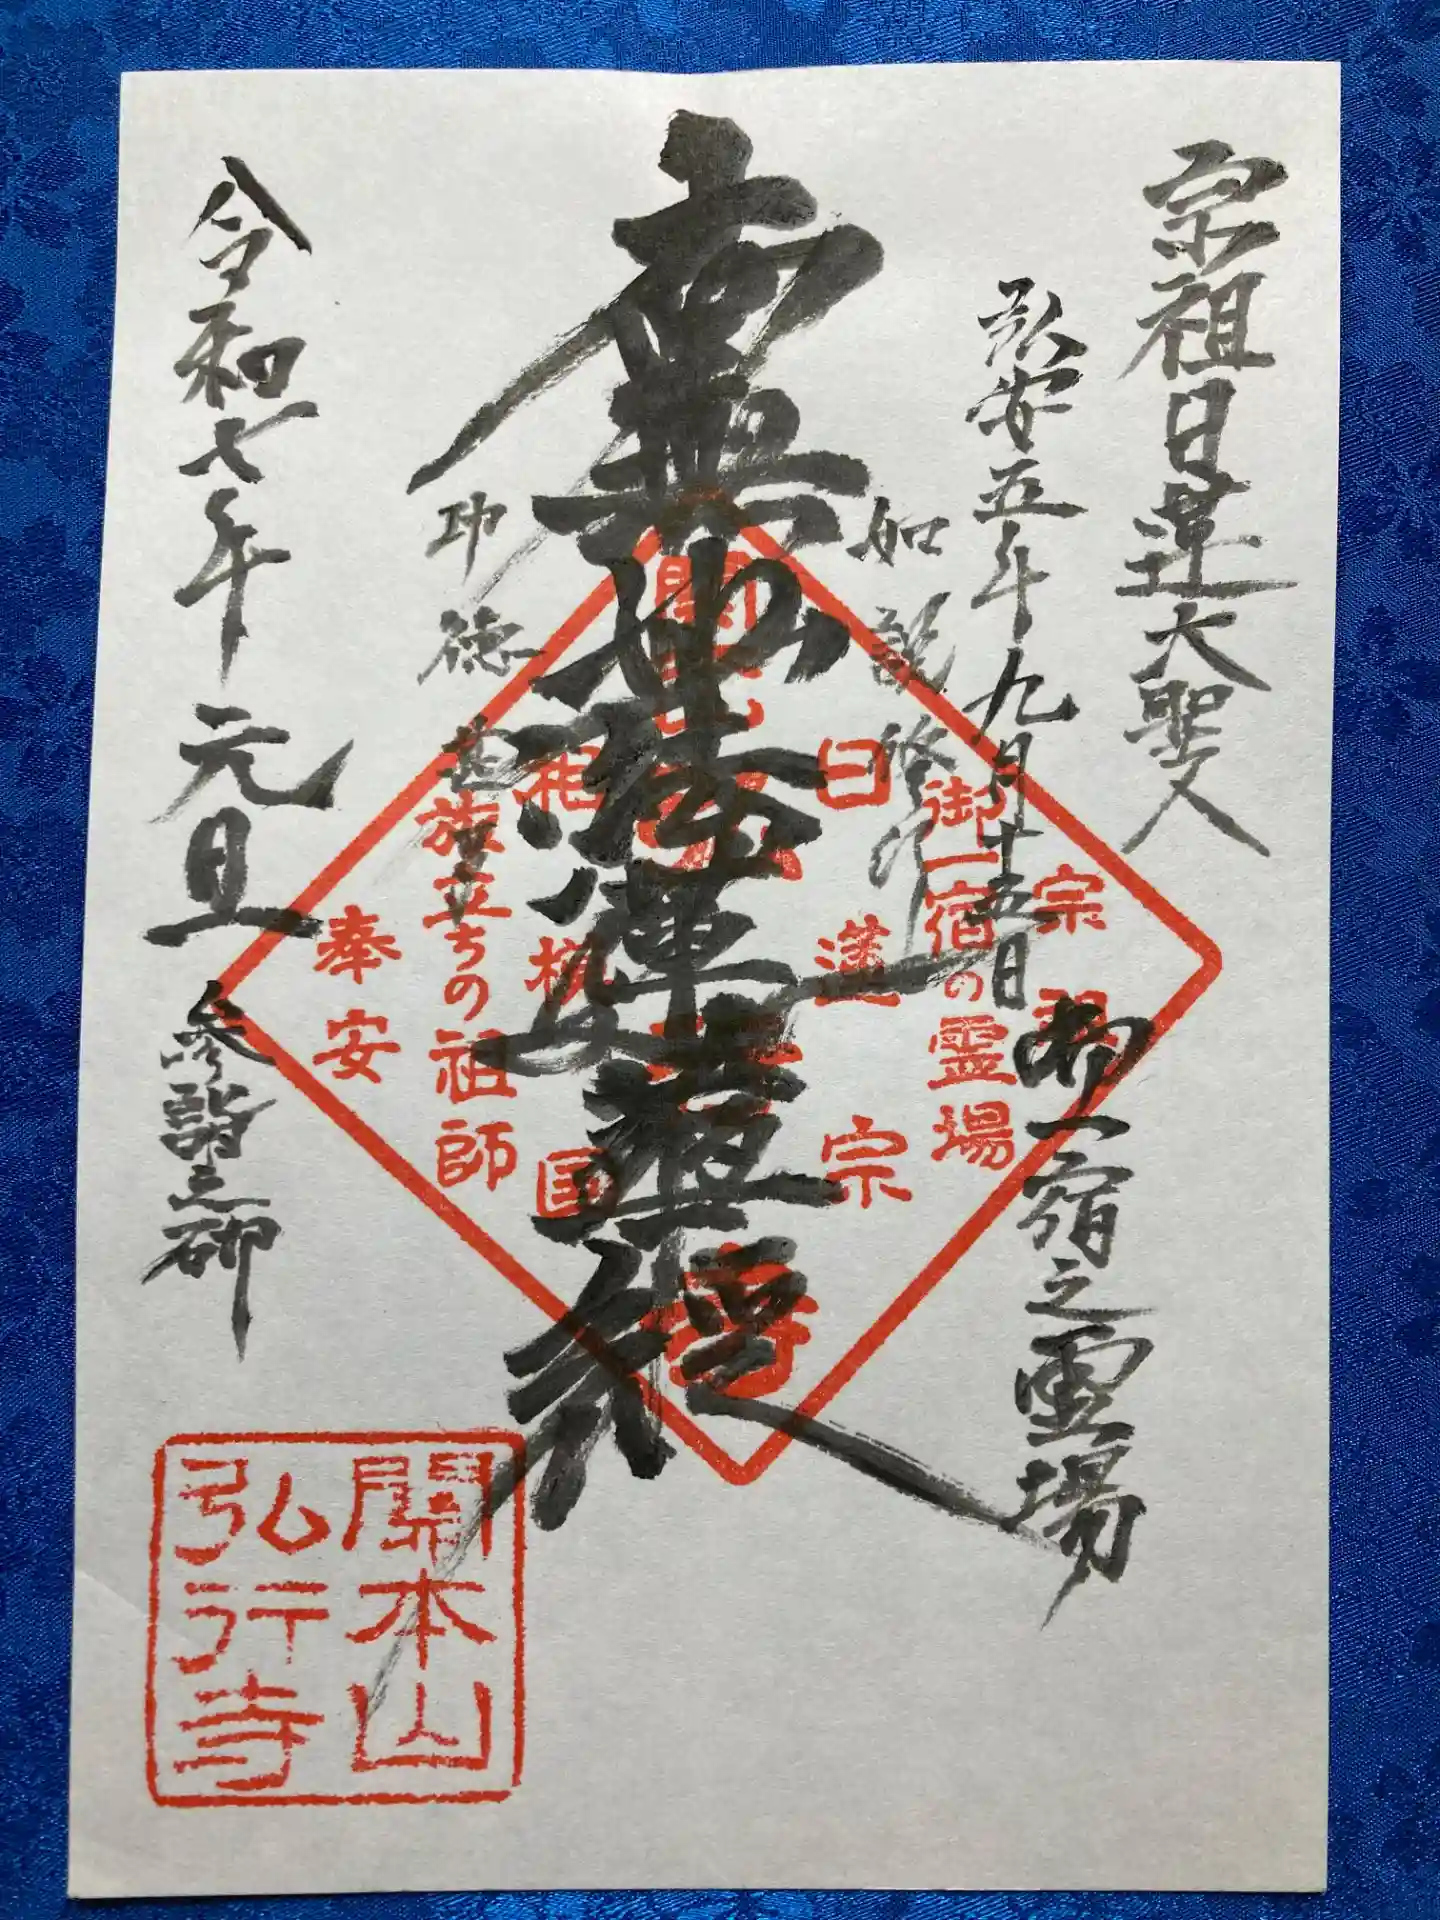 宗祖日蓮大聖人
弘安五年九月十五日
御一宿之霊場
如説修行
南無妙法蓮華経
功徳甚多
令和七年元旦
参詣之砌
宗祖
御一宿の霊場
日蓮宗
開本山
弘行寺
相模国
旅立ちの祖師
奉安
開本山
弘行寺